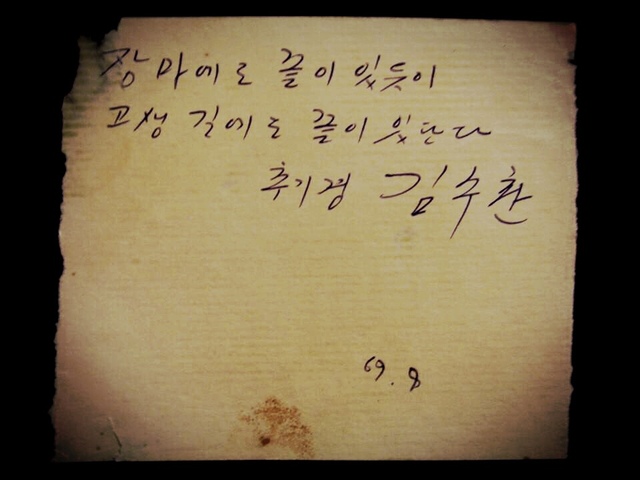 장마에도 끝이 있듯이
고생 길에도 끝이 있단다
추기경 김수환
69. 8